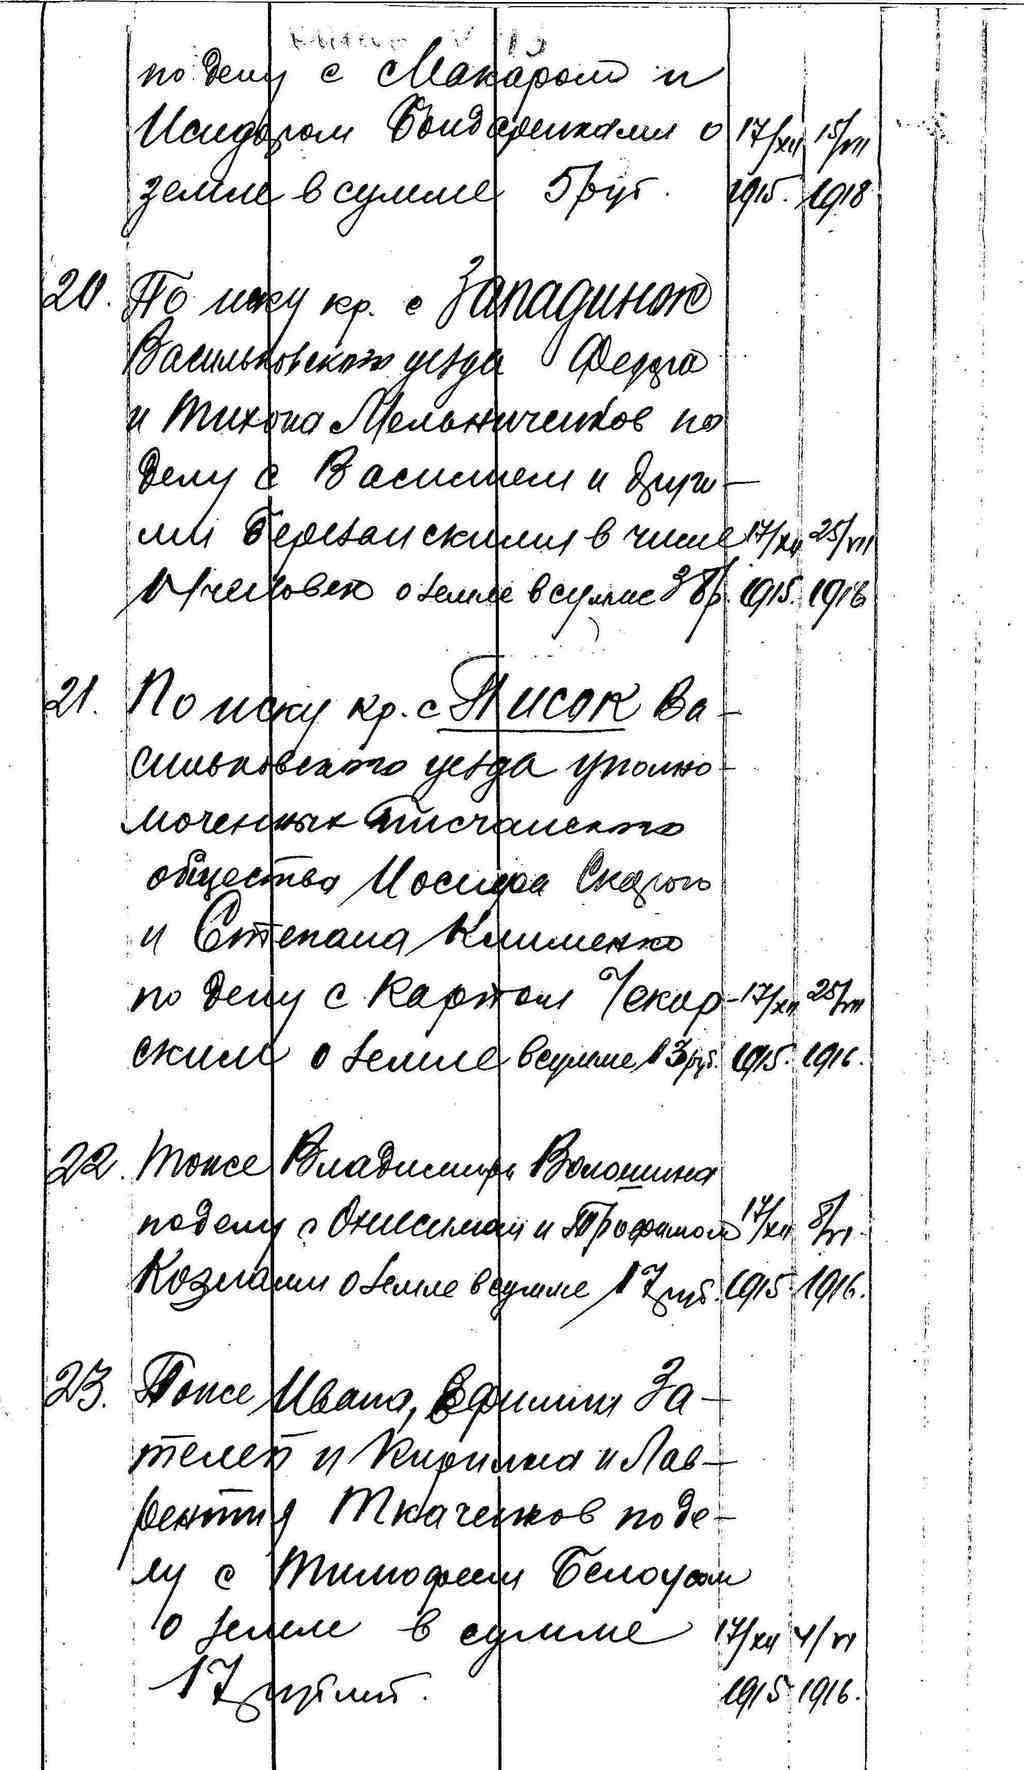 по делу с Макаром и
Исидором Бондаренками о 17/XII 15/VII
земле в сумме 5 руб. 1915. 1918
20. По иску кр. с Западинок
Васильковского уезда Федора
и Тихона Мельниченков по
делу с Василием и други-
ми Березанскими в числе 17/XII 25/VII
человек о земле в сумме 38 р. 1915. 1916
21. По иску кр. с Писок Ва-
сильковского уезда уполно-
моченных Писчанского
общества Иосифа Скорого
и Степана Клименко
по делу с Карпом Чекар- 17/XII 25/VII
ским о земле в сумме 13 руб. 1915. 1916.
22. Тоже Владимира Волошина
по делу с Онисимом и Трофимом 17/XII 8/VI.
Козлами о земле в сумме 17 руб. 1915. 1916.
23. Тоже Ивана, Ефимии За-
телеп и Кирилла и Лав-
рентия Ткаченков по де-
лу с Тимофеем Белоусом
о земле в сумме 17/XII 4/VI
17 рублей. 1915 1916.